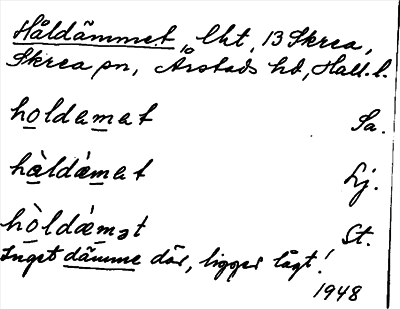 Håldämmet, lht, 13 Skrea,
Skrea sn, Årstads hd, Hall. l.
holdamat Sa.
hàldámat Lj.
hòldámət St.
Inget dämme där, ligger lågt!
1948